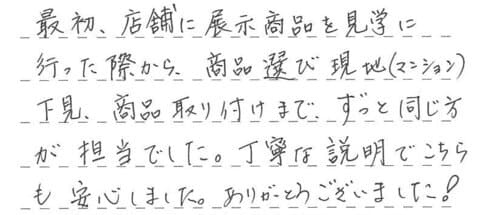 最初、店舗に展示商品を見学に
行った際から、商品選び現地(マンション)
下見、商品取り付けまで、ずっと同じ方
が担当でした。丁寧な説明でこちら
も安心しました。ありがとうございました!